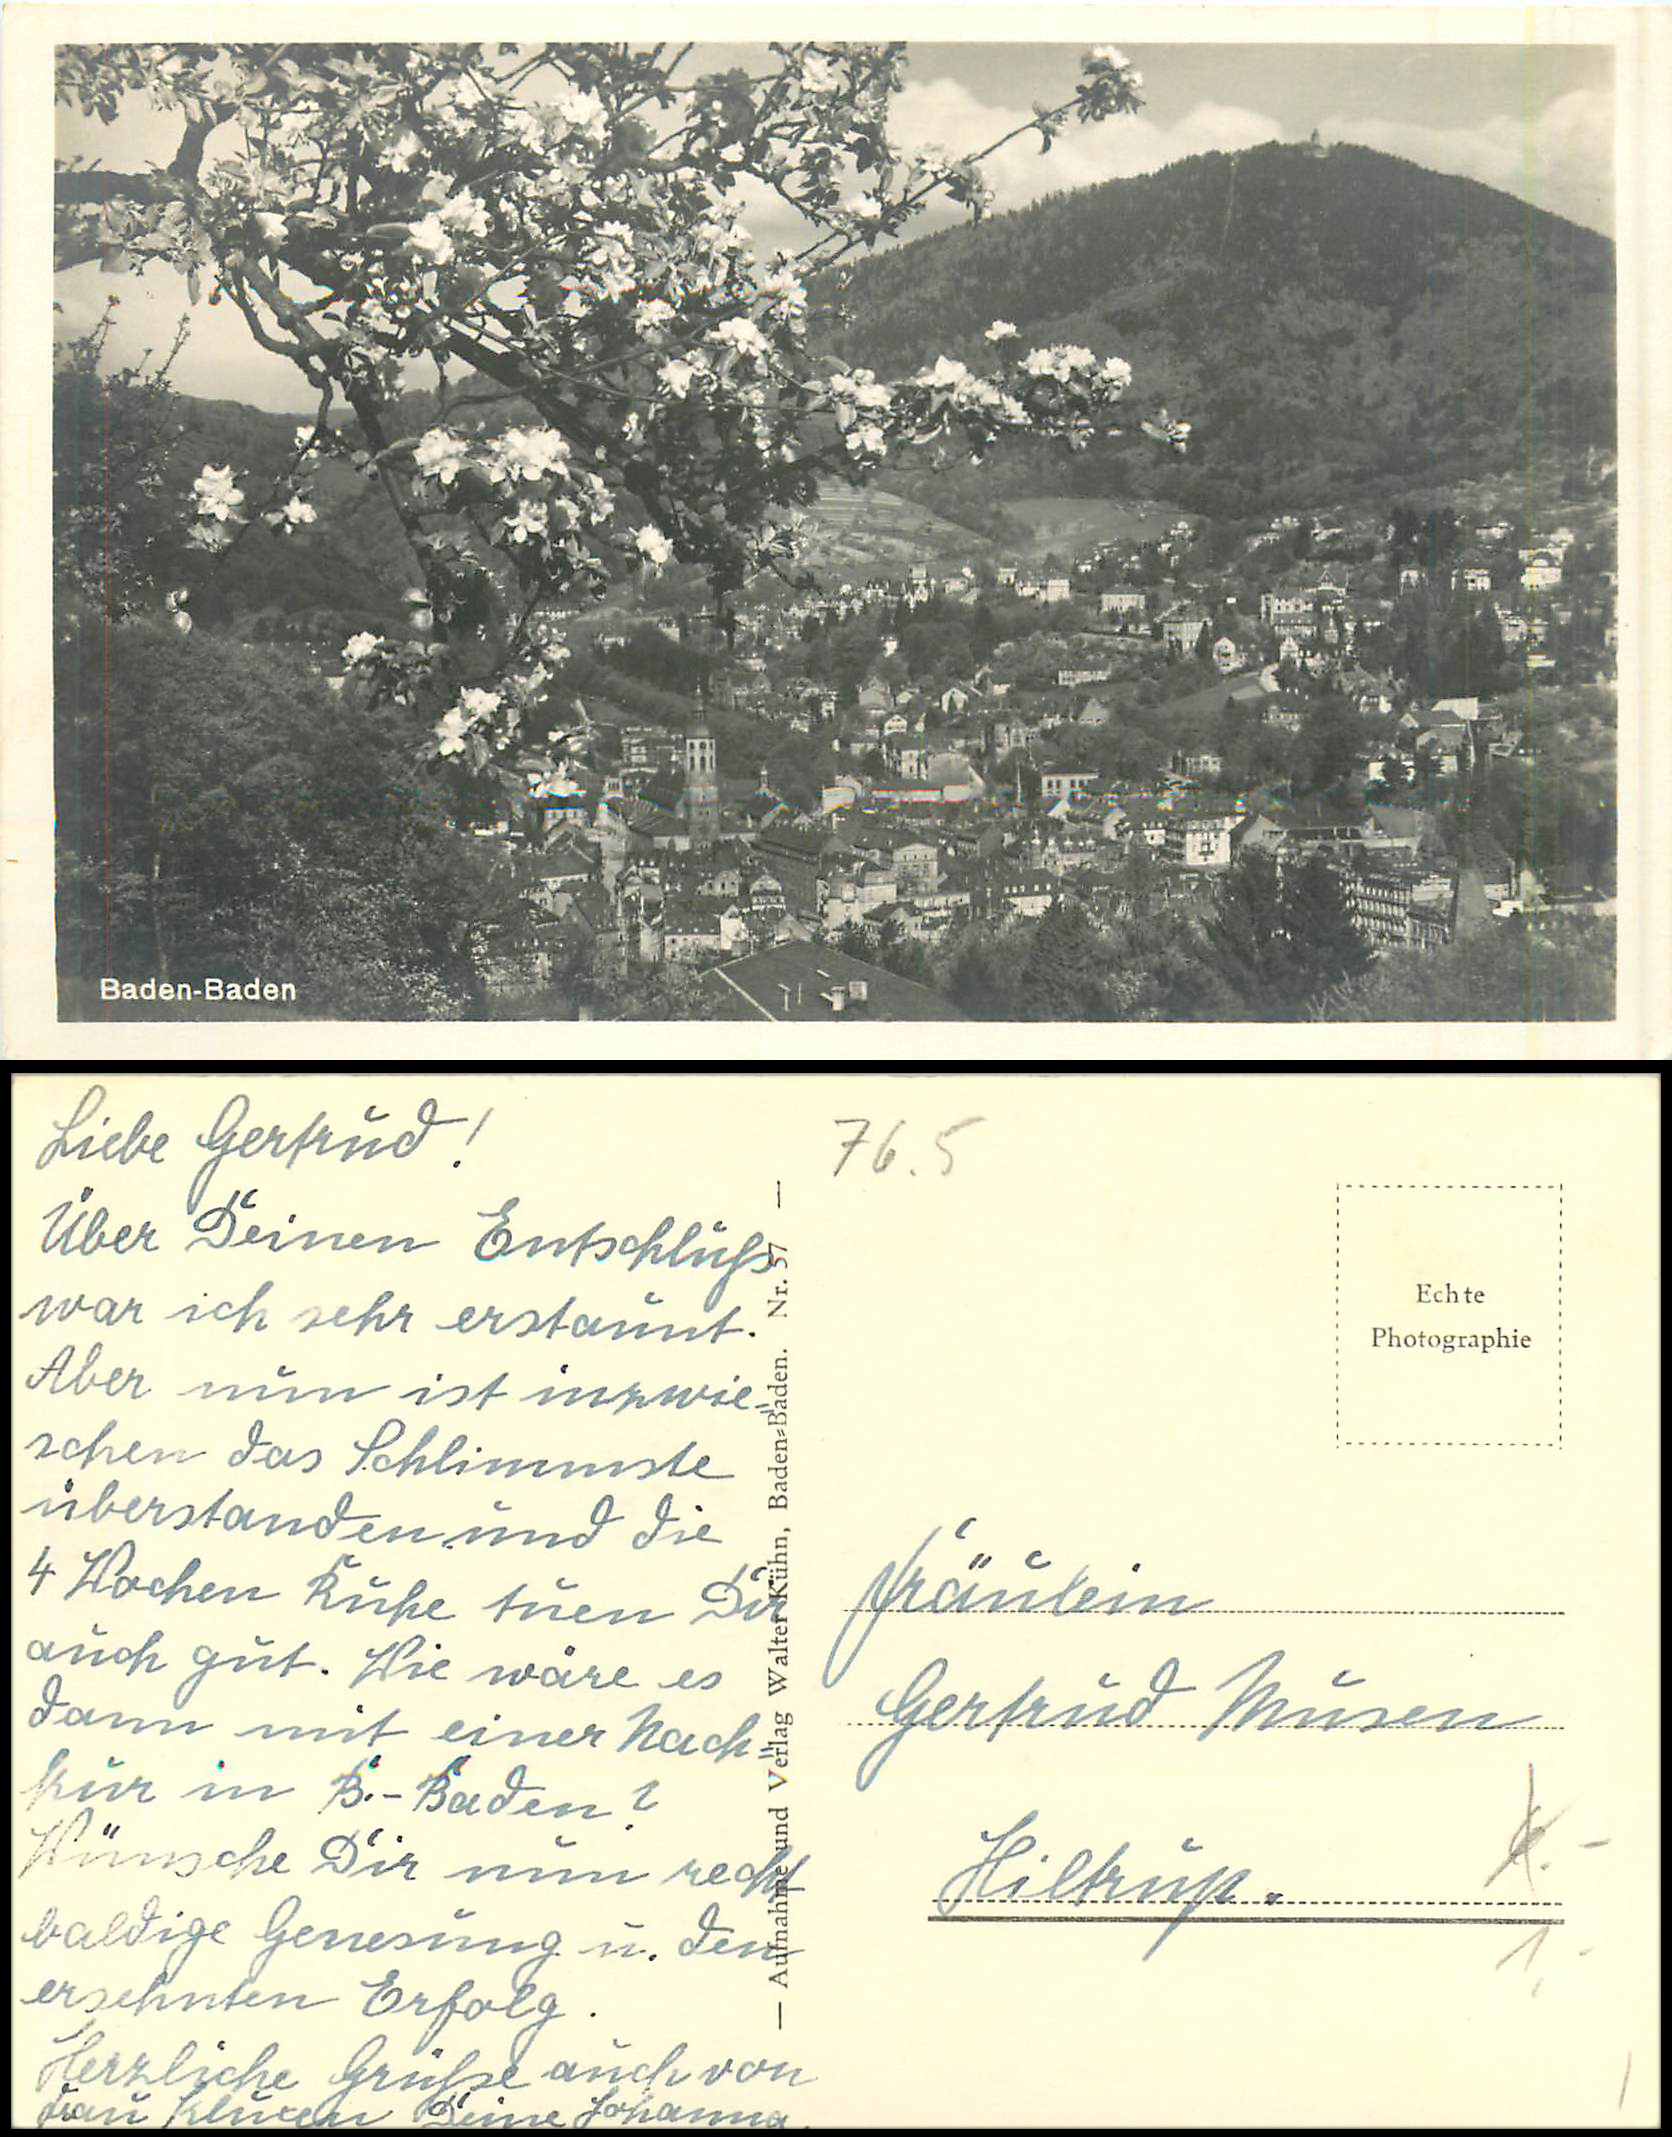 Baden-Baden
Liebe Gertrud!
Über Deinen Entschluß
war ich sehr erstaunt.
Aber nun ist inzwi-
schen das Schlimmste
überstanden und die
4 Wochen Ruhe tuen Dir
auch gut. Wie wäre es
dann mit einer Nach-
kur in B.-Baden?
Wünsche Dir nun recht
baldige Genesung u. den
ersehnten Erfolg.
Herzliche Grüße auch von
Frau Deine Johanna.
— Aufnahme und Verlag Walter Kühn, Baden-Baden. Nr. 57 —
76.5
Echte
Photographie
Fräulein
Gertrud Müsen
Hiltrup.
1,-